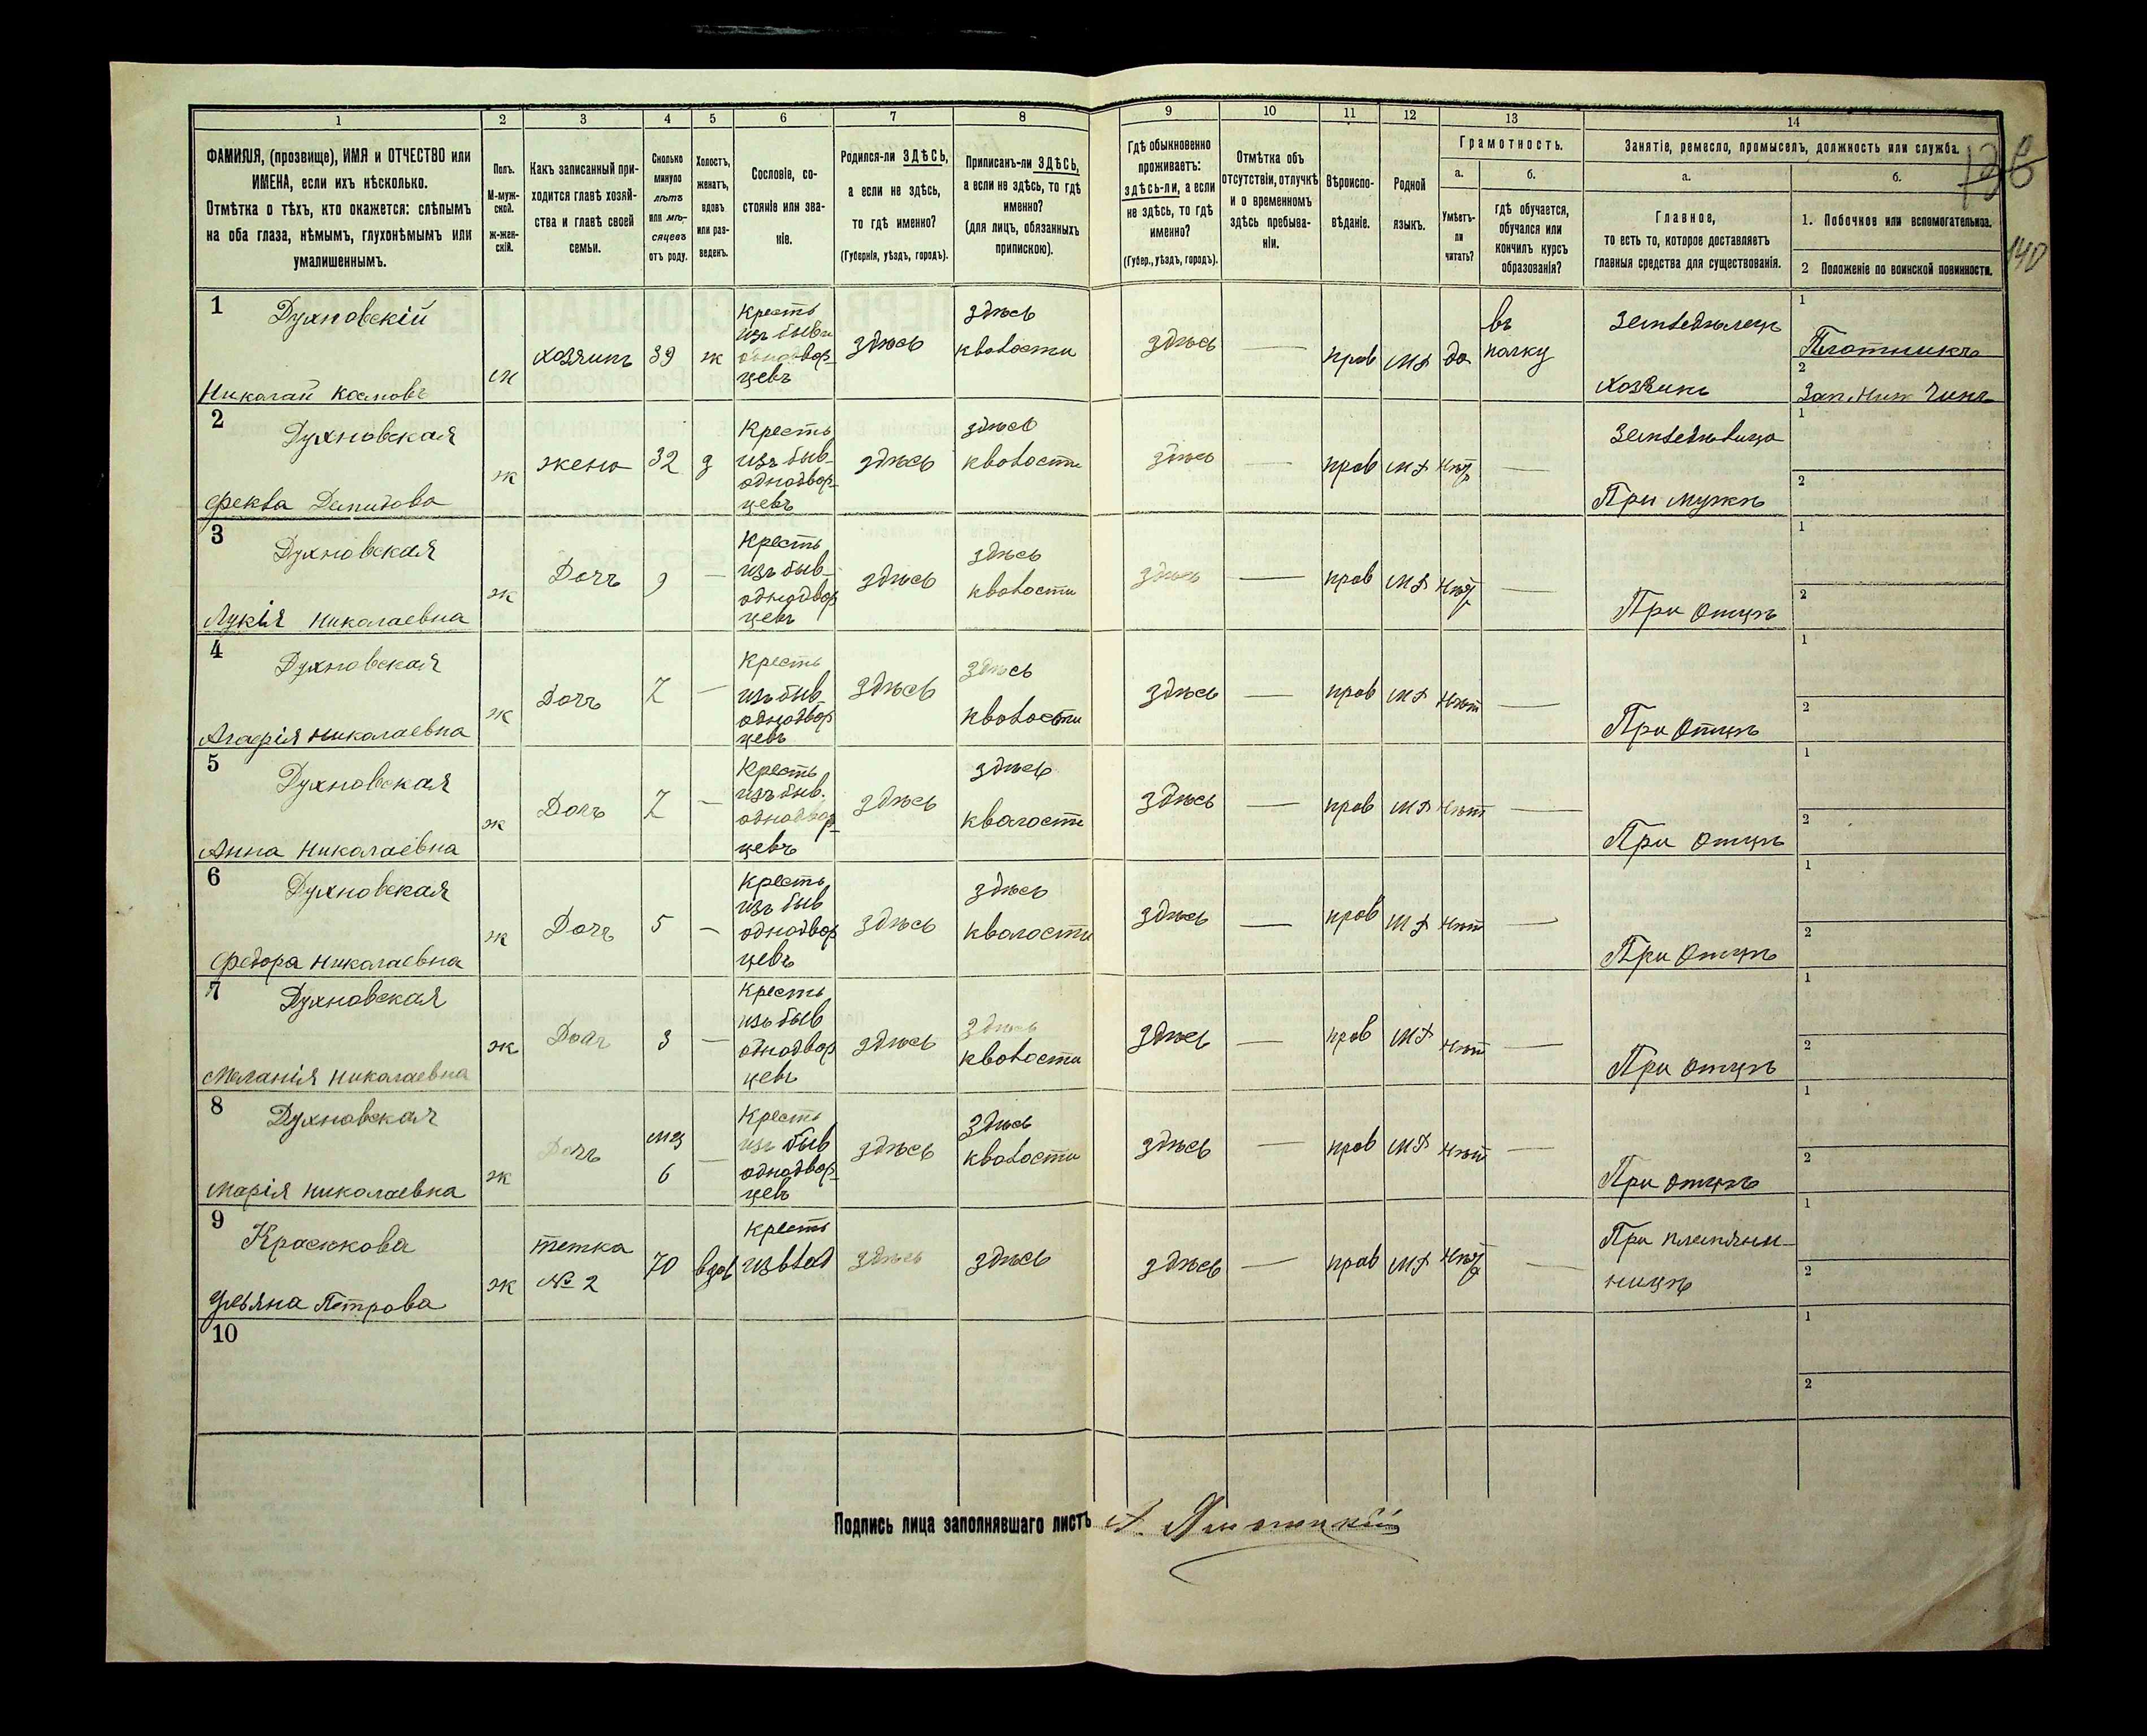 1 2 3 4 5 6 7 8 9 10 11 12 13 14
ФАМИЛІЯ, (прозвище), ИМЯ и ОТЧЕСТВО или
ИМЕНА, если ихъ нѣсколько.
Отмѣтка о тѣхъ, кто окажется: слѣпымъ
на оба глаза, нѣмымъ, глухонѣмымъ или
умалишеннымъ.
Полъ.
М-муж-
ской.
ж-жен-
скій.
Какъ записанный при-
ходится главѣ хозяй-
ства и главѣ своей
семьи.
Сколько
минуло
лѣтъ
или мѣ-
сяцевъ
отъ роду.
Холостъ,
женатъ,
вдовъ
или раз-
веденъ.
Сословіе, со-
стояніе или зва-
ніе.
Родился-ли ЗДѢСЬ,
а если не здѣсь,
то гдѣ именно?
(Губернія, уѣздъ, городъ).
Приписанъ-ли ЗДѢСЬ,
а если не здѣсь, то гдѣ
именно?
(для лицъ, обязанныхъ
припискою).
Гдѣ обыкновенно
проживаетъ:
здѣсь-ли, а если
не здѣсь, то гдѣ
именно?
(Губер., уѣздъ, городъ).
Отмѣтка объ
отсутствіи, отлучкѣ
и о временномъ
здѣсь пребыва-
ніи.
Вѣроиспо-
вѣданіе.
Родной
языкъ.
Грамотность.
а.
Умѣетъ-
ли
читать?
б.
гдѣ обучается,
обучался или
кончилъ курсъ
образованія?
Занятіе, ремесло, промыселъ, должность или служба.
а.
Главное,
то есть то, которое доставляетъ
главныя средства для существованія.
б.
1. Побочное или вспомогательное.
2 Положеніе по воинской повинности.
140
1
Духновскій
Николай Космовъ
м
хозяинъ
39
ж
Кресть
изъ бывш
однодвор-
цевъ
здѣсь
здѣсь
кволости
здѣсь
—
прав
мл
да
въ
полку
Земледѣлецъ
хозяинъ
1
Плотникъ
2
Зап. Ниж Чинъ
2
Духновская
Фекла Демидова
ж
жена
32
з
Кресть
изъ быв-
однодвор-
цевъ
здѣсь
здѣсь
кволости
здѣсь
—
прав
мл
нѣт
—
Земледѣлица
При мужѣ
1
2
3
Духновская
Лукія Николаевна
ж
Дочь
9
—
Кресть
изъ быв-
однодвор
цевъ
здѣсь
здѣсь
кволости
здѣсь
—
прав
мл
нѣт
—
При отцѣ
1
2
4
Духновская
Агафія Николаевна
ж
Дочь
7
—
Кресть
изъ быв-
однодвор
цевъ
здѣсь
здѣсь
кволости
здѣсь
—
прав
мл
нѣт
—
При отцѣ
1
2
5
Духновская
Анна Николаевна
ж
Дочь
7
—
Кресть
изъ быв.
однодвор-
цевъ
здѣсь
здѣсь
кволости
здѣсь
—
прав
мл
нѣт
—
При отцѣ
1
2
6
Духновская
Федора Николаевна
ж
Дочь
5
—
Кресть
изъ быв
однодвор
цевъ
здѣсь
здѣсь
кволости
здѣсь
—
прав
мл
нѣт
—
При отцѣ
1
2
7
Духновская
Меланія Николаевна
ж
Дочь
3
—
Кресть
изъ быв
однодвор
цевъ
здѣсь
здѣсь
кволости
здѣсь
—
прав
мл
нѣт
—
При отцѣ
1
2
8
Духновская
Марія Николаевна
ж
Дочь
мц
6
—
Кресть
изъ быв
однодвор-
цевъ
здѣсь
здѣсь
кволости
здѣсь
—
прав
мл
нѣт
—
При отцѣ
1
2
9
Красюкова
Ульяна Петрова
ж
тетка
№ 2
70
вдов
Кресть
изъ влад
здѣсь
здѣсь
здѣсь
—
прав
мл
нѣт
—
При племян-
ницѣ
1
2
10
1
2
Подпись лица заполнявшаго листъ